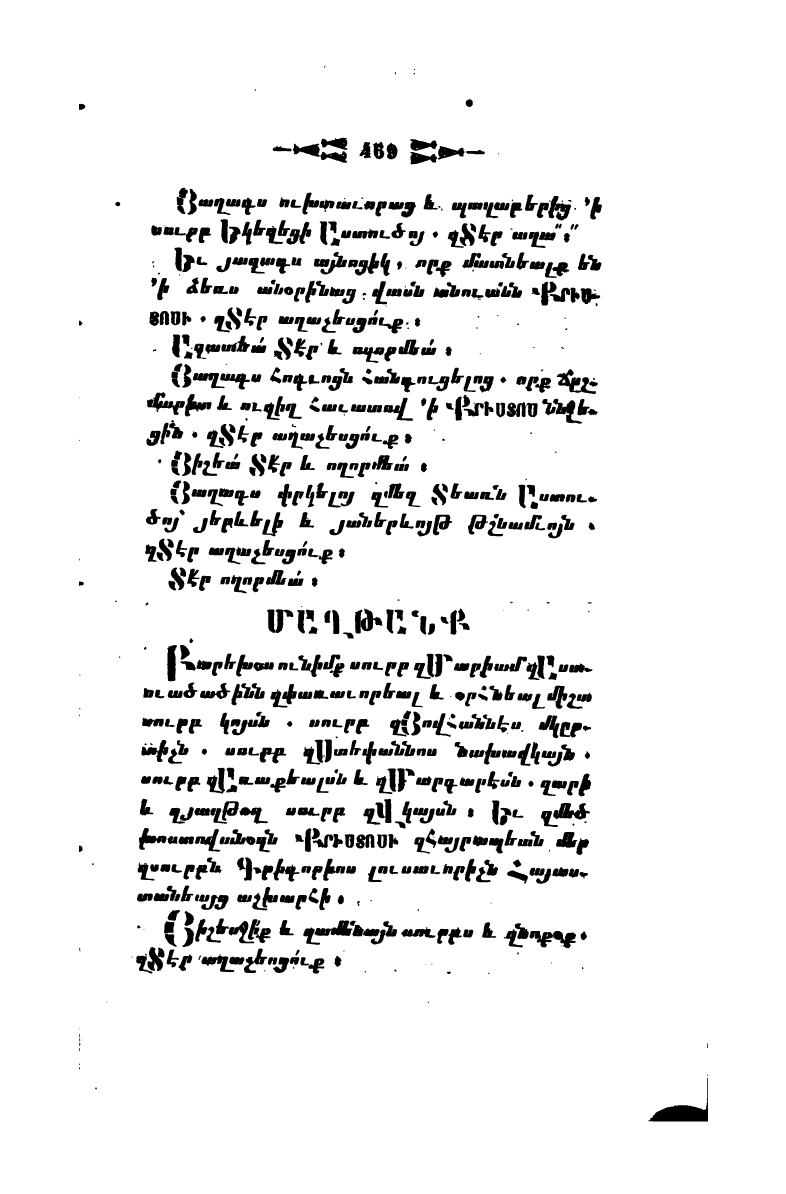 469
Յաղագս ուխտաւորաց և պաղաբերից 'ի
սուրբ Եկեղեցի Աստուծոյ . զՏէր աղա՛՛։՛՛
Եւ յաղագս այնոցիկ , որք մատնեալք են
'ի ձեռս անօրինաց . վասն անուանն ՔՐԻՍ-
ՏՈՍԻ . զՏէր աղաչեսցո՛ւք ։
Ազատեա՛ Տէր և ողորմեա՛ ։
Յաղագս Հոգւոցն Հանգուցելոց . որք ճըշ-
մարիտ և ուղիղ Հաւատով 'ի ՔՐԻՍՏՈՍ ննջե-
ցին . զՏէր աղաչեսցո՛ւք ։
Յիշեա՛ Տէր և ողորմեա՛ ։
Յաղագս փրկելոյ զմեզ Տեառն Աստու-
ծոյ՝ յերևելի և յաներևոյթ թշնամւոյն .
զՏէր աղաչեսցո՛ւք ։
Տէր ողորմեա՛ ։
ՄԱՂԹԱՆՔ
Բարեխօս ունիմք սուրբ զՄարիամ զԱստ-
ուածածինն զփառաւորեալ և օրՀնեալ միշտ
սուրբ կոյսն . սուրբ զՅովՀաննէս մկըր-
տիչն . սուրբ զՍտեփաննոս նախավկայն .
սուրբ զԱռաքեալսն և զՄարգարէսն . զարի
և զյաղթող սուրբ զՎկայսն ։ Եւ զմեծ
խոստովանօղն ՔՐԻՍՏՈՍԻ զՀայրապետն մեր
զսուրբն Գրիգորիոս լուսաւորիչն Հայաս-
տանեայց աշխարՀի .
Յիշեսջիք և զամենայն սուրբս և զնոքօք .
զՏէր աղաչեսցո՛ւք ։